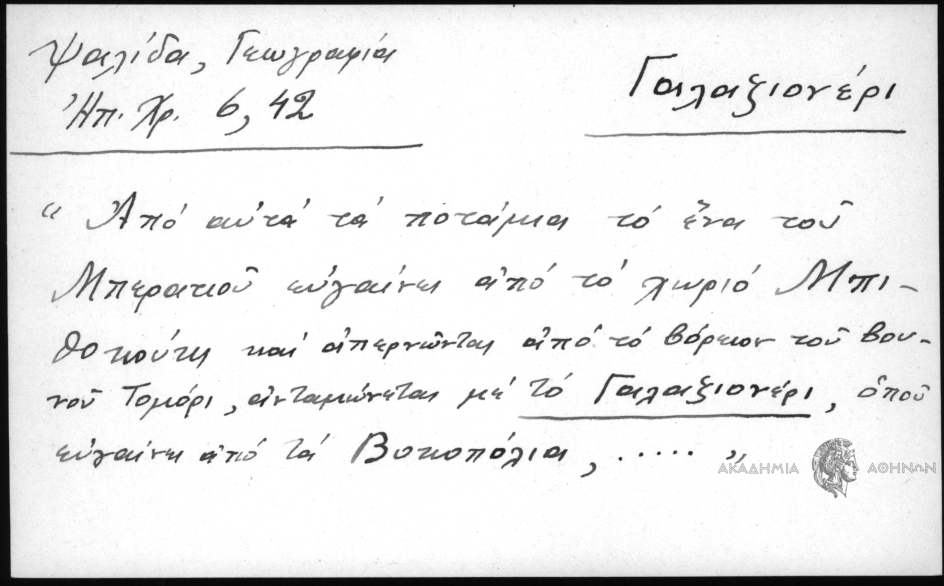 Ψαλίδα, Γεωγραφία
Ἠπ. Χρ. 6, 42
Γαλαξιονέρι
“ Ἀπό αὐτά τά ποτάμια τό ἕνα τοῦ
Μπερατιοῦ εὐγαίνει ἀπό τό χωριό Μπι-
θοκούκι καί ἀπερνῶντας ἀπό τό βόρειον τοῦ βου-
νοῦ Τομόρι, ἀνταμώνεται μέ τό Γαλαξιονέρι, ὁποῦ
εὐγαίνει ἀπό τά Βοκοπόλια, ..... „
ΑΚΑΔΗΜΙΑ ΑΘΗΝΩΝ